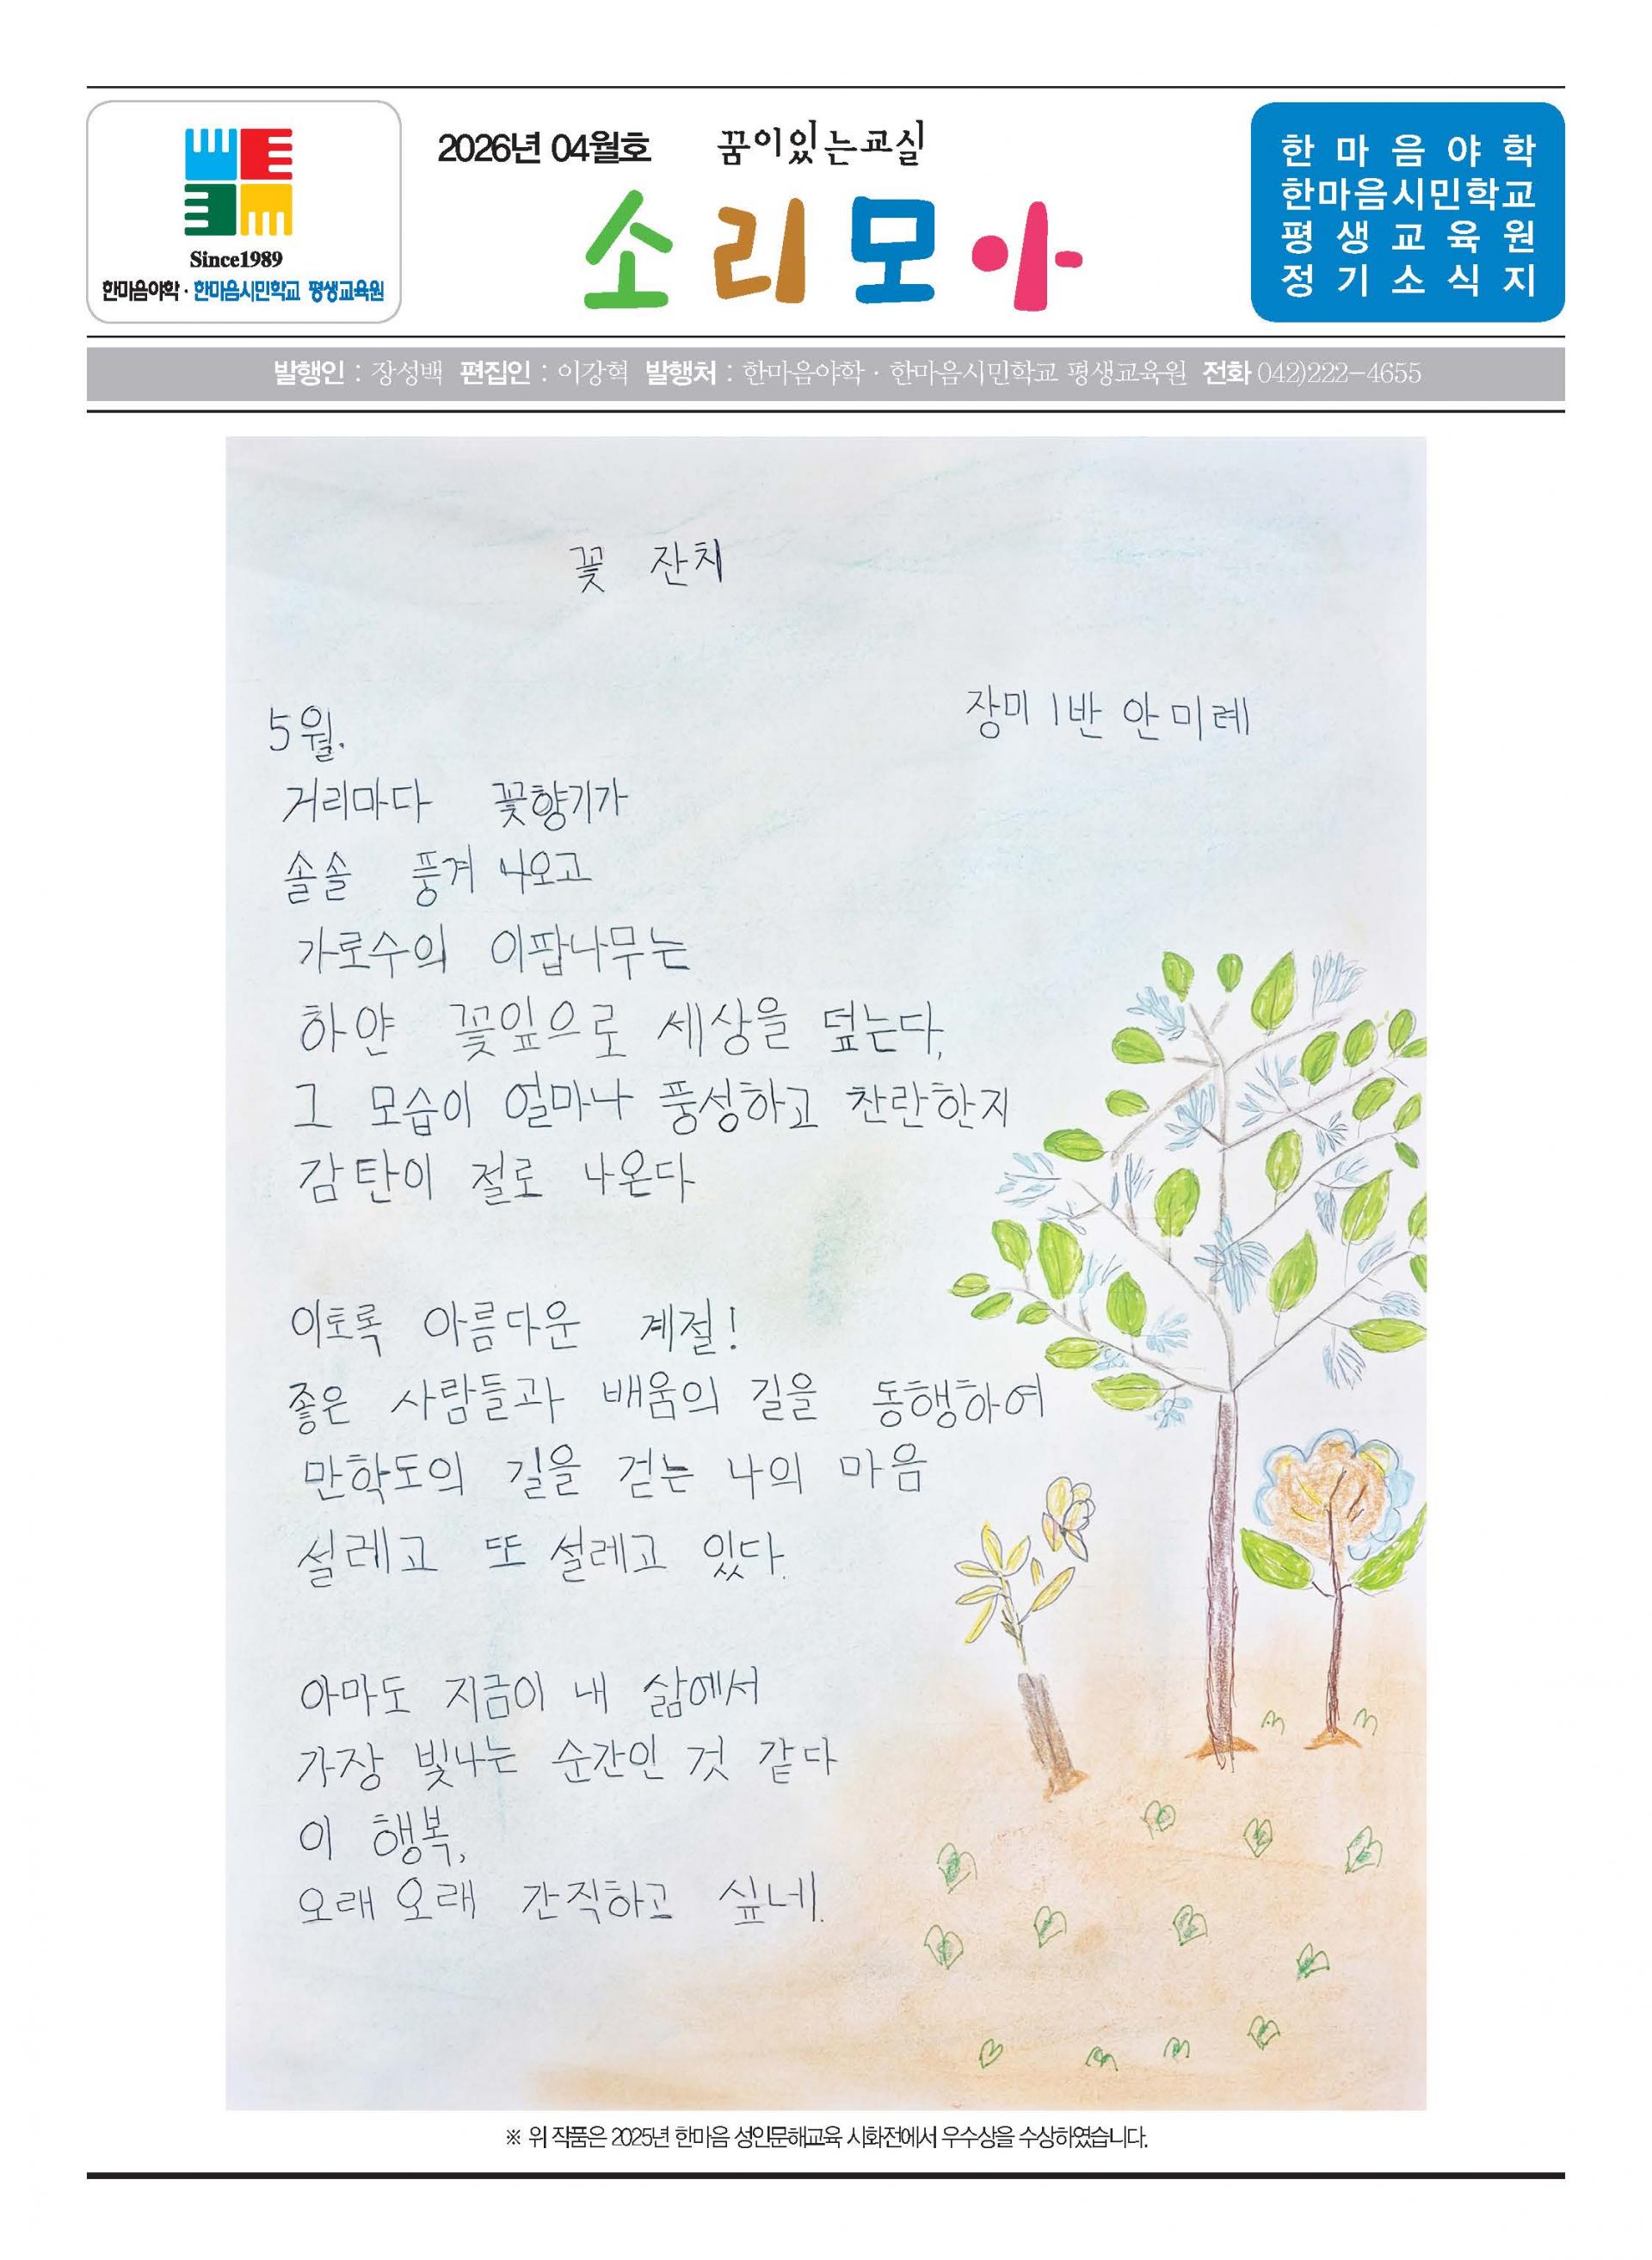 Since1989
한마음야학 · 한마음시민학교 평생교육원
2026년 04월호 꿈이있는교실
소리모아
한마음야학
한마음시민학교
평생교육원
정기소식지
발행인 : 장성백 편집인 : 이강혁 발행처 : 한마음야학 · 한마음시민학교 평생교육원 전화 042)222-4655
꽃 잔치
장미 1반 안미례
5월.
거리마다 꽃향기가
솔솔 풍겨 나오고
가로수의 이팝나무는
하얀 꽃잎으로 세상을 덮는다,
그 모습이 얼마나 풍성하고 찬란한지
감탄이 절로 나온다
이토록 아름다운 계절!
좋은 사람들과 배움의 길을 동행하여
만학도의 길을 걷는 나의 마음
설레고 또 설레고 있다.
아마도 지금이 내 삶에서
가장 빛나는 순간인 것 같다
이 행복,
오래오래 간직하고 싶네.
※ 위 작품은 2025년 한마음 성인문해교육 시화전에서 우수상을 수상하였습니다.